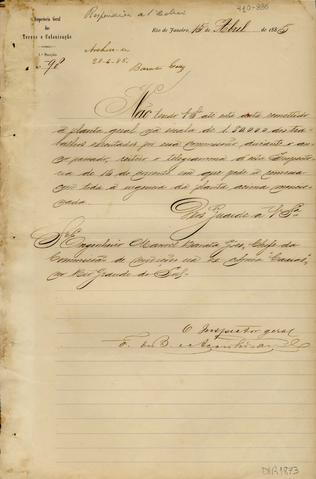 Inspectoria Geral
das
Terras e Colonização
Rio de Janeiro, 15 de Abril de 1885
410-886
Archive-se
20-4-85.
Não tendo V. Sª até esta data remettido
a planta geral na escala de 1:50.000 dos tra-
balhos executados por essa commissão durante o an-
no passado, reitero o telegramma d'esta Inspecto-
ria de 14 do corrente em que pede a
da a urgencia da planta acima mencio-
nada.
Deos Guarde a V. Sª
Engenheiro Manoel Barata Góes, Chefe da
Commissão de medição na Ex Colonia Caxias,
no Rio Grande do Sul.
O Inspector geral
F. de B. e Accioli de
DVR1873